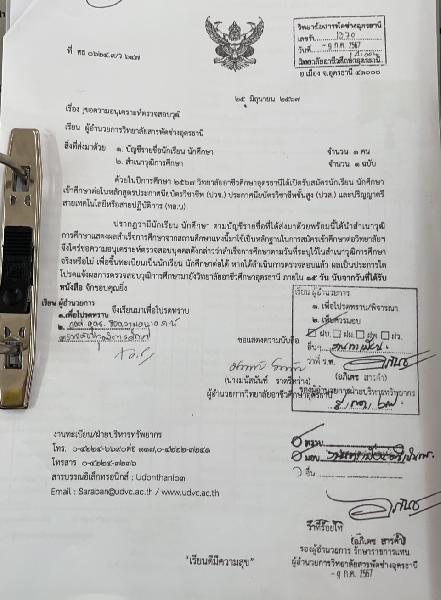 วิทยาลัยสารพัดช่างอุดรธานี
เลขรับ 1270
วันที่ -๙ ก.ค. 2567
ที่ ศธ ๐๖๒๔.๙/๖๒๗
วิทยาลัยอาชีวศึกษาอุดรธานี
อ.เมือง จ.อุดรธานี ๔๑๐๐๐
๒๕ มิถุนายน ๒๕๖๗
เรื่อง ขอความอนุเคราะห์ตรวจสอบวุฒิ
เรียน ผู้อำนวยการวิทยาลัยสารพัดช่างอุดรธานี
สิ่งที่ส่งมาด้วย ๑. บัญชีรายชื่อนักเรียน นักศึกษา จำนวน ๑ คน
๒. สำเนาวุฒิการศึกษา จำนวน ๑ ฉบับ
ด้วยในปีการศึกษา ๒๕๖๗ วิทยาลัยอาชีวศึกษาอุดรธานีได้เปิดรับสมัครนักเรียน นักศึกษา
เข้าศึกษาต่อในหลักสูตรประกาศนียบัตรวิชาชีพ (ปวช.) ประกาศนียบัตรวิชาชีพชั้นสูง (ปวส.) และปริญญาตรี
สายเทคโนโลยีหรือสายปฏิบัติการ (ทล.บ)
ปรากฏว่ามีนักเรียน นักศึกษา ตามบัญชีรายชื่อที่ได้ส่งมาด้วยพร้อมนี้ได้นำสำเนาวุฒิ
การศึกษาแสดงผลสำเร็จการศึกษาจากสถานศึกษาแห่งนี้มาใช้เป็นหลักฐานในการสมัครเข้าศึกษาต่อวิทยาลัยฯ
จึงใคร่ขอความอนุเคราะห์ตรวจสอบบุคคลดังกล่าวว่าสำเร็จการศึกษาตามวันที่ระบุไว้ในสำเนาวุฒิการศึกษา
จริงหรือไม่ เพื่อขึ้นทะเบียนเป็นนักเรียน นักศึกษาต่อได้ หากได้ดำเนินการตรวจสอบแล้ว ผลเป็นประการใด
โปรดแจ้งผลการตรวจสอบวุฒิการศึกษามายังวิทยาลัยอาชีวศึกษาอุดรธานี ภายใน ๑๕ วัน นับจากวันที่ได้รับ
หนังสือ จักขอบคุณยิ่ง
เรียน ผู้อำนวยการ
จึงเรียนมาเพื่อโปรดทราบ
๑.เพื่อโปรดทราบ
๒.
ขอแสดงความนับถือ
(นางมนัสนันท์ ราตรีหว่าง)
ผู้อำนวยการวิทยาลัยอาชีวศึกษาอุดรธานี
เรียน ผู้อำนวยการ
๑. เพื่อโปรดทราบ/พิจารณา
๒. เห็นควรมอบ
อื่นๆ
ว่าที่ ร.ต.
(อภิเดช สารคำ)
รองผู้อำนวยการฝ่ายบริหารทรัพยากร
งานทะเบียน/ฝ่ายบริหารทรัพยากร
โทรสาร ๐-๔๒๒๔-๗๒๓๖
สารบรรณอิเล็กทรอนิกส์ : Udonthani๐๓
Email : Saraban@udvc.ac.th / www.udvc.ac.th
ทราบ
มอบ
อื่น
ว่าที่ร้อยโท
(อภิเดช สารคำ)
รองผู้อำนวยการ รักษาราชการแทน
ผู้อำนวยการวิทยาลัยสารพัดช่างอุดรธานี
-๙ ก.ค. 2567
"เรียนดีมีความสุข"